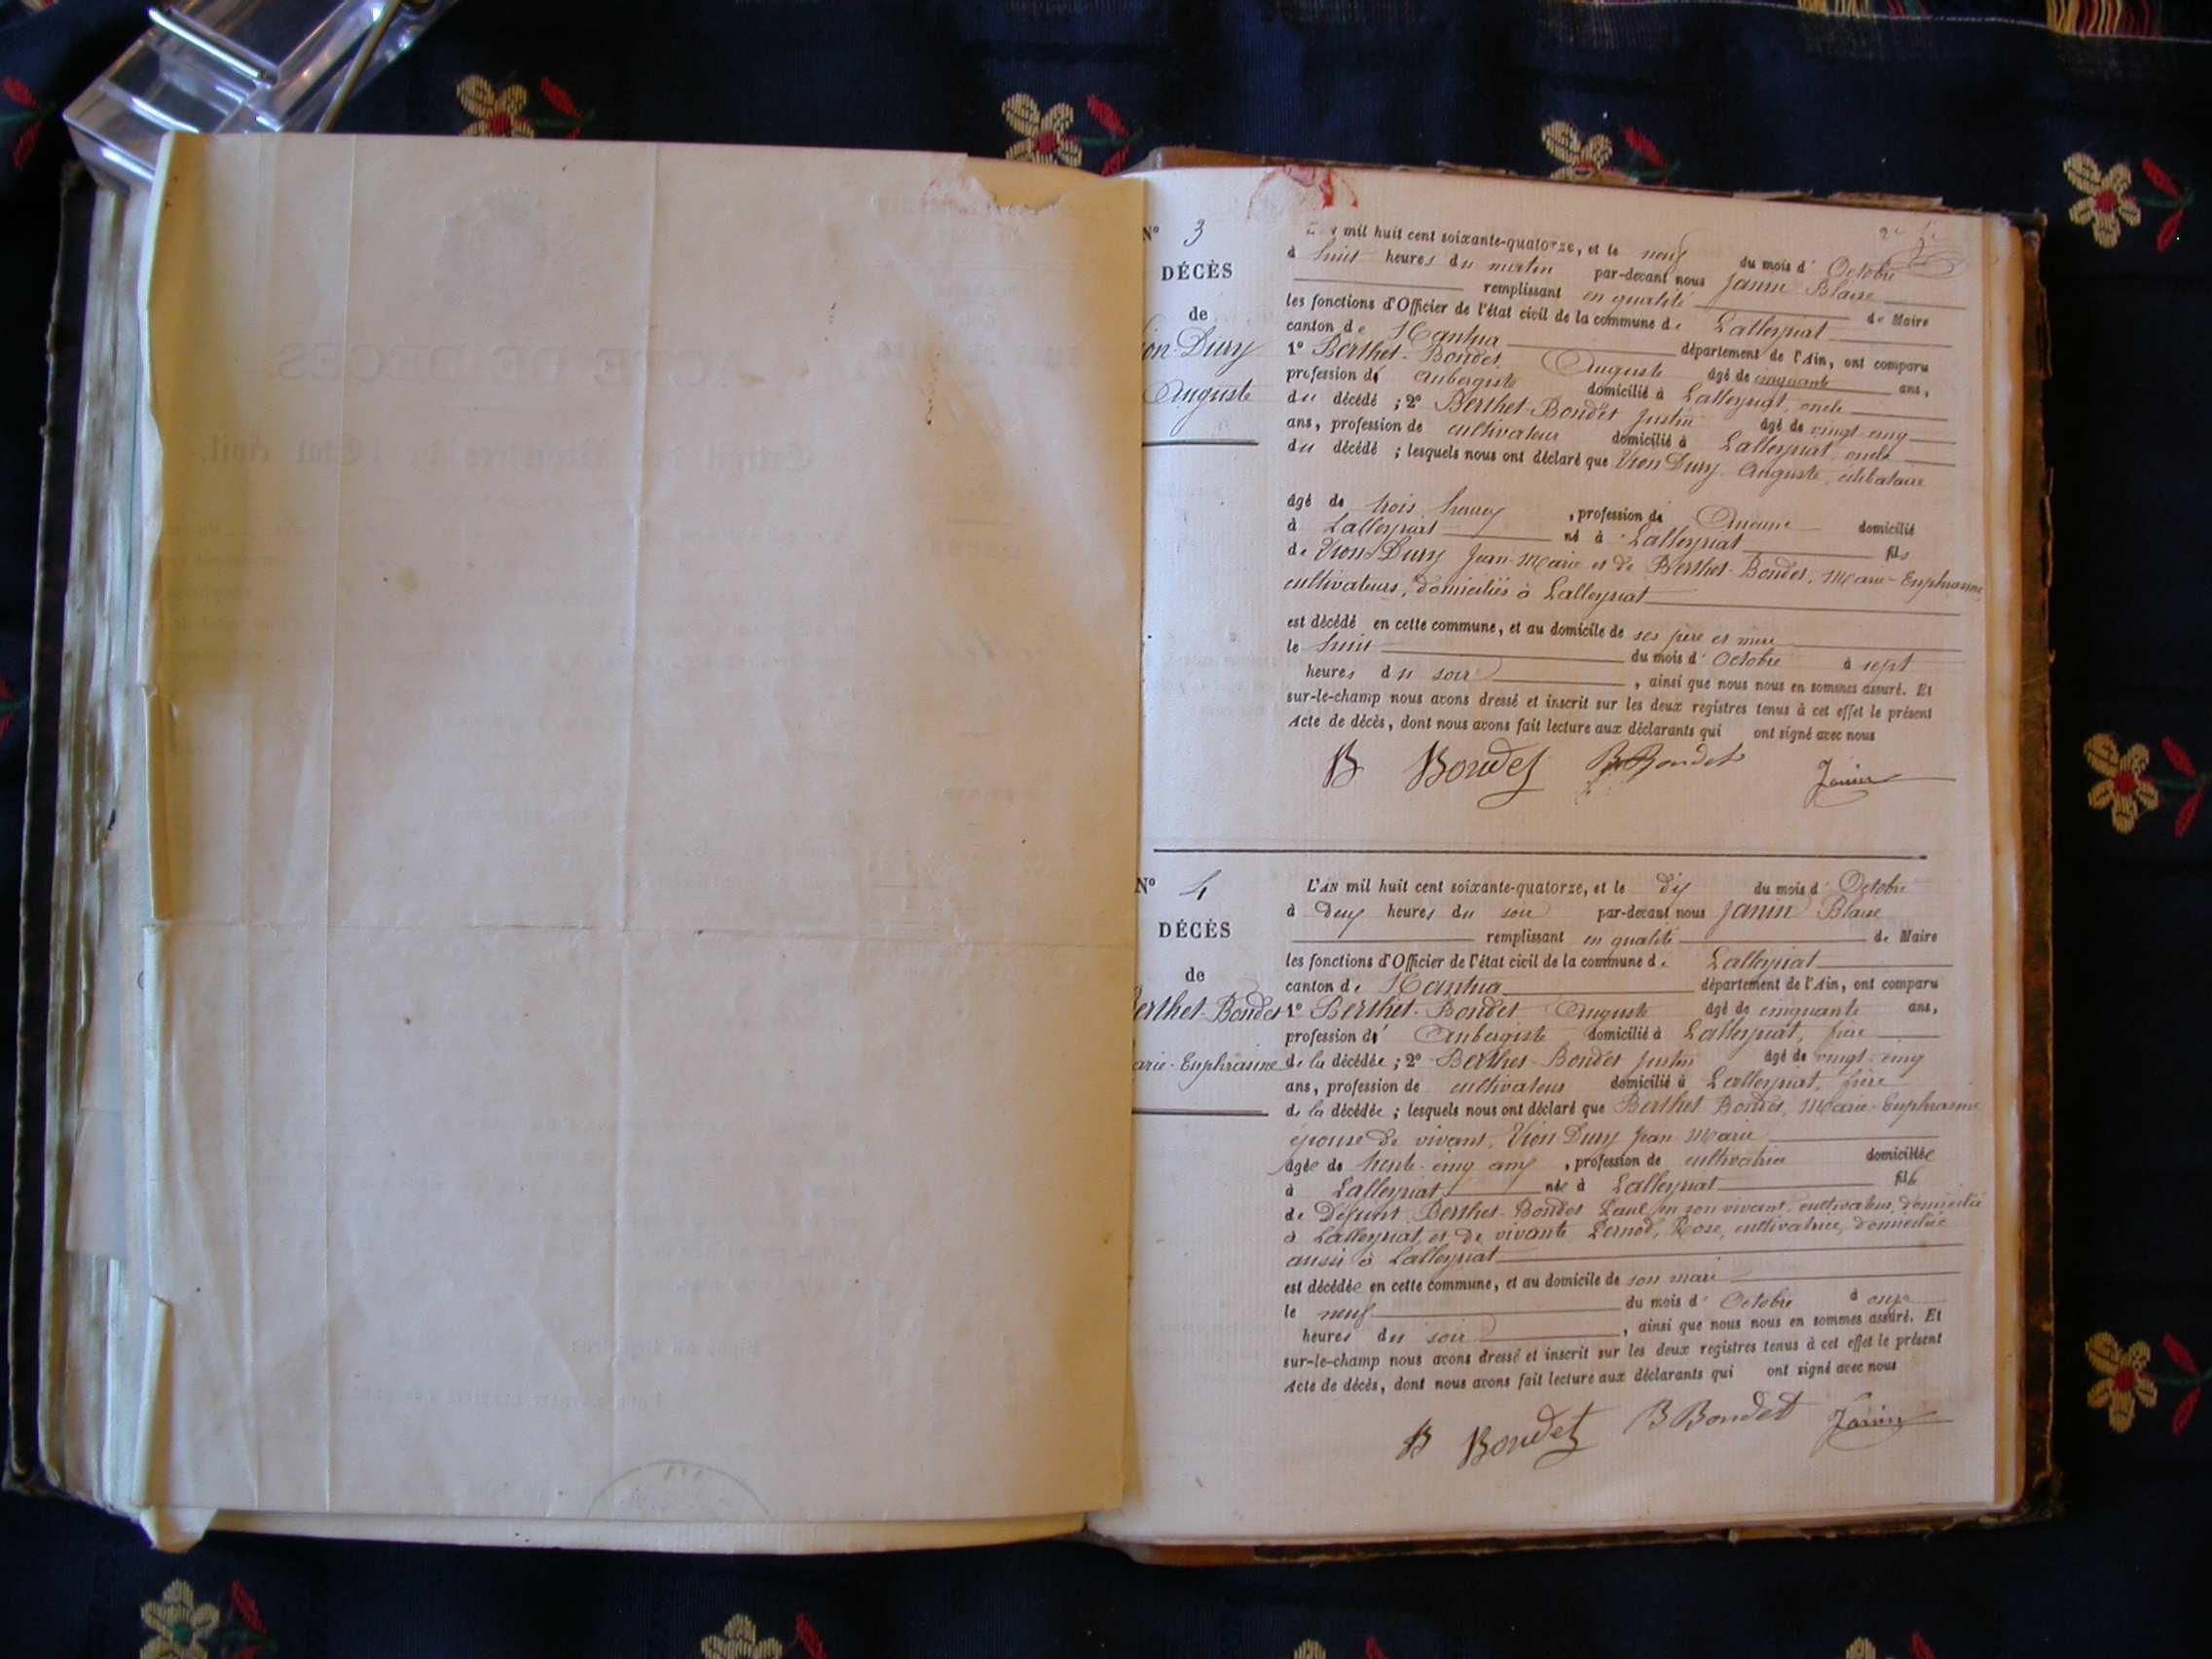 2e fe
N° 3
DÉCÈS
de
ion-Dury
Auguste
mil huit cent soixante-quatorze, et le neuf du mois d'Octobre
à huit heures du matin par-devant nous Janin Blaise
remplissant en qualité de Maire
les fonctions d'Officier de l'état civil de la commune de Lalleyriat
canton de Nantua département de l'Ain, ont comparu
1° Berthet-Bondet Auguste âgé de cinquante ans,
profession de Aubergiste domicilié à Lalleyriat, oncle
du décédé ; 2° Berthet-Bondet Justin âgé de vingt-cinq
ans, profession de cultivateur domicilié à Lalleyriat, oncle
du décédé ; lesquels nous ont déclaré que Vion Dury Auguste, célibataire
âgé de trois heures, profession de Aucune domicilié
à Lalleyriat né à Lalleyriat fils
de Vion-Dury Jean-Marie et de Berthet-Bondet, Marie-Euphrasine
cultivateurs, domiciliés à Lalleyriat
est décédé en cette commune, et au domicile de ses père et mère
le huit du mois d'Octobre à sept
heures du soir, ainsi que nous nous en sommes assuré. Et
sur-le-champ nous avons dressé et inscrit sur les deux registres tenus à cet effet le présent
Acte de décès, dont nous avons fait lecture aux déclarants qui ont signé avec nous
B Bondet B Bondet Janin
N° 4
DÉCÈS
de
Berthet-Bondet
arie-Euphrasine
L'AN mil huit cent soixante-quatorze, et le dix du mois d'Octobre
à deux heures du soir par-devant nous Janin Blaise
remplissant en qualité de Maire
les fonctions d'Officier de l'état civil de la commune de Lalleyriat
canton de Nantua département de l'Ain, ont comparu
1° Berthet-Bondet Auguste âgé de cinquante ans,
profession de Aubergiste domicilié à Lalleyriat, frère
de la décédée ; 2° Berthet-Bondet Justin âgé de vingt-cinq
ans, profession de cultivateur domicilié à Lalleyriat, frère
de la décédée ; lesquels nous ont déclaré que Berthet Bondet, Marie-Euphrasine
épouse de vivant, Vion Dury Jean Marie
âgée de trente-cinq ans, profession de cultivatrice domiciliée
à Lalleyriat née à Lalleyriat fille
de Défunt Berthet-Bondet Paul en son vivant cultivateur domicilié
à Lalleyriat, et de vivante Pernod, Rose, cultivatrice, domiciliée
aussi à Lalleyriat
est décédée en cette commune, et au domicile de son mari
le neuf du mois d'Octobre à onze
heures du soir, ainsi que nous nous en sommes assuré. Et
sur-le-champ nous avons dressé et inscrit sur les deux registres tenus à cet effet le présent
Acte de décès, dont nous avons fait lecture aux déclarants qui ont signé avec nous
B Bondet B Bondet Janin